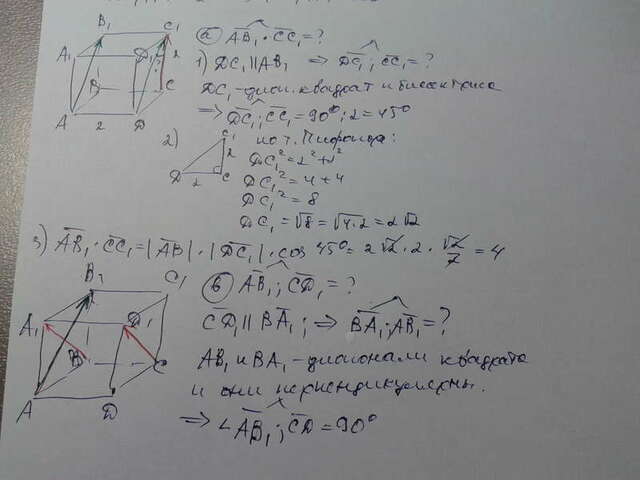 B₁ C₁
A₁ D₁ 2
B C
A 2 D
а) AB₁ · CC₁ = ?
1) DC₁ || AB₁ ⇒ DC₁ ; CC₁ = ?
DC₁ - диаг. квадрат и биссектриса
⇒ DC₁ ; CC₁ = 90° : 2 = 45°
2) по т. Пифагора:
C₁
2
D 2 C
DC₁² = 2² + 2²
DC₁² = 4 + 4
DC₁² = 8
DC₁ = √8 = √4·2 = 2√2
3) AB₁ · CC₁ = |AB| · |DC₁| · cos 45° = 2√2 · 2 · √2/2 = 4
B₁ C₁
A₁ D₁
B C
A D
в) AB₁ ; CD₁ = ?
CD₁ || BA₁ ; ⇒ BA₁ ; AB₁ = ?
AB₁ и BA₁ - диагонали квадрата
и они перпендикулярны.
⇒ ∠ AB₁ ; CD = 90°